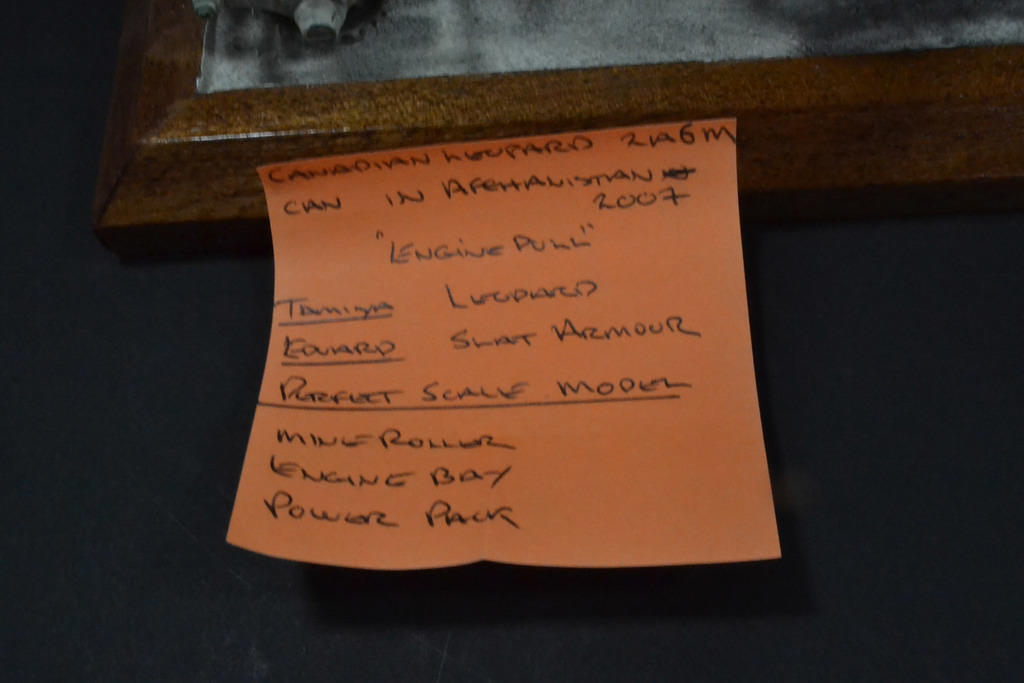 CANADIAN LEOPARD 2A6M
CAN IN AFGHANISTAN
2007
"ENGINE PULL"
TAMIYA LEOPARD
EDUARD SLAT ARMOUR
PERFECT SCALE MODEL
MINE ROLLER
ENGINE BAY
POWER PACK